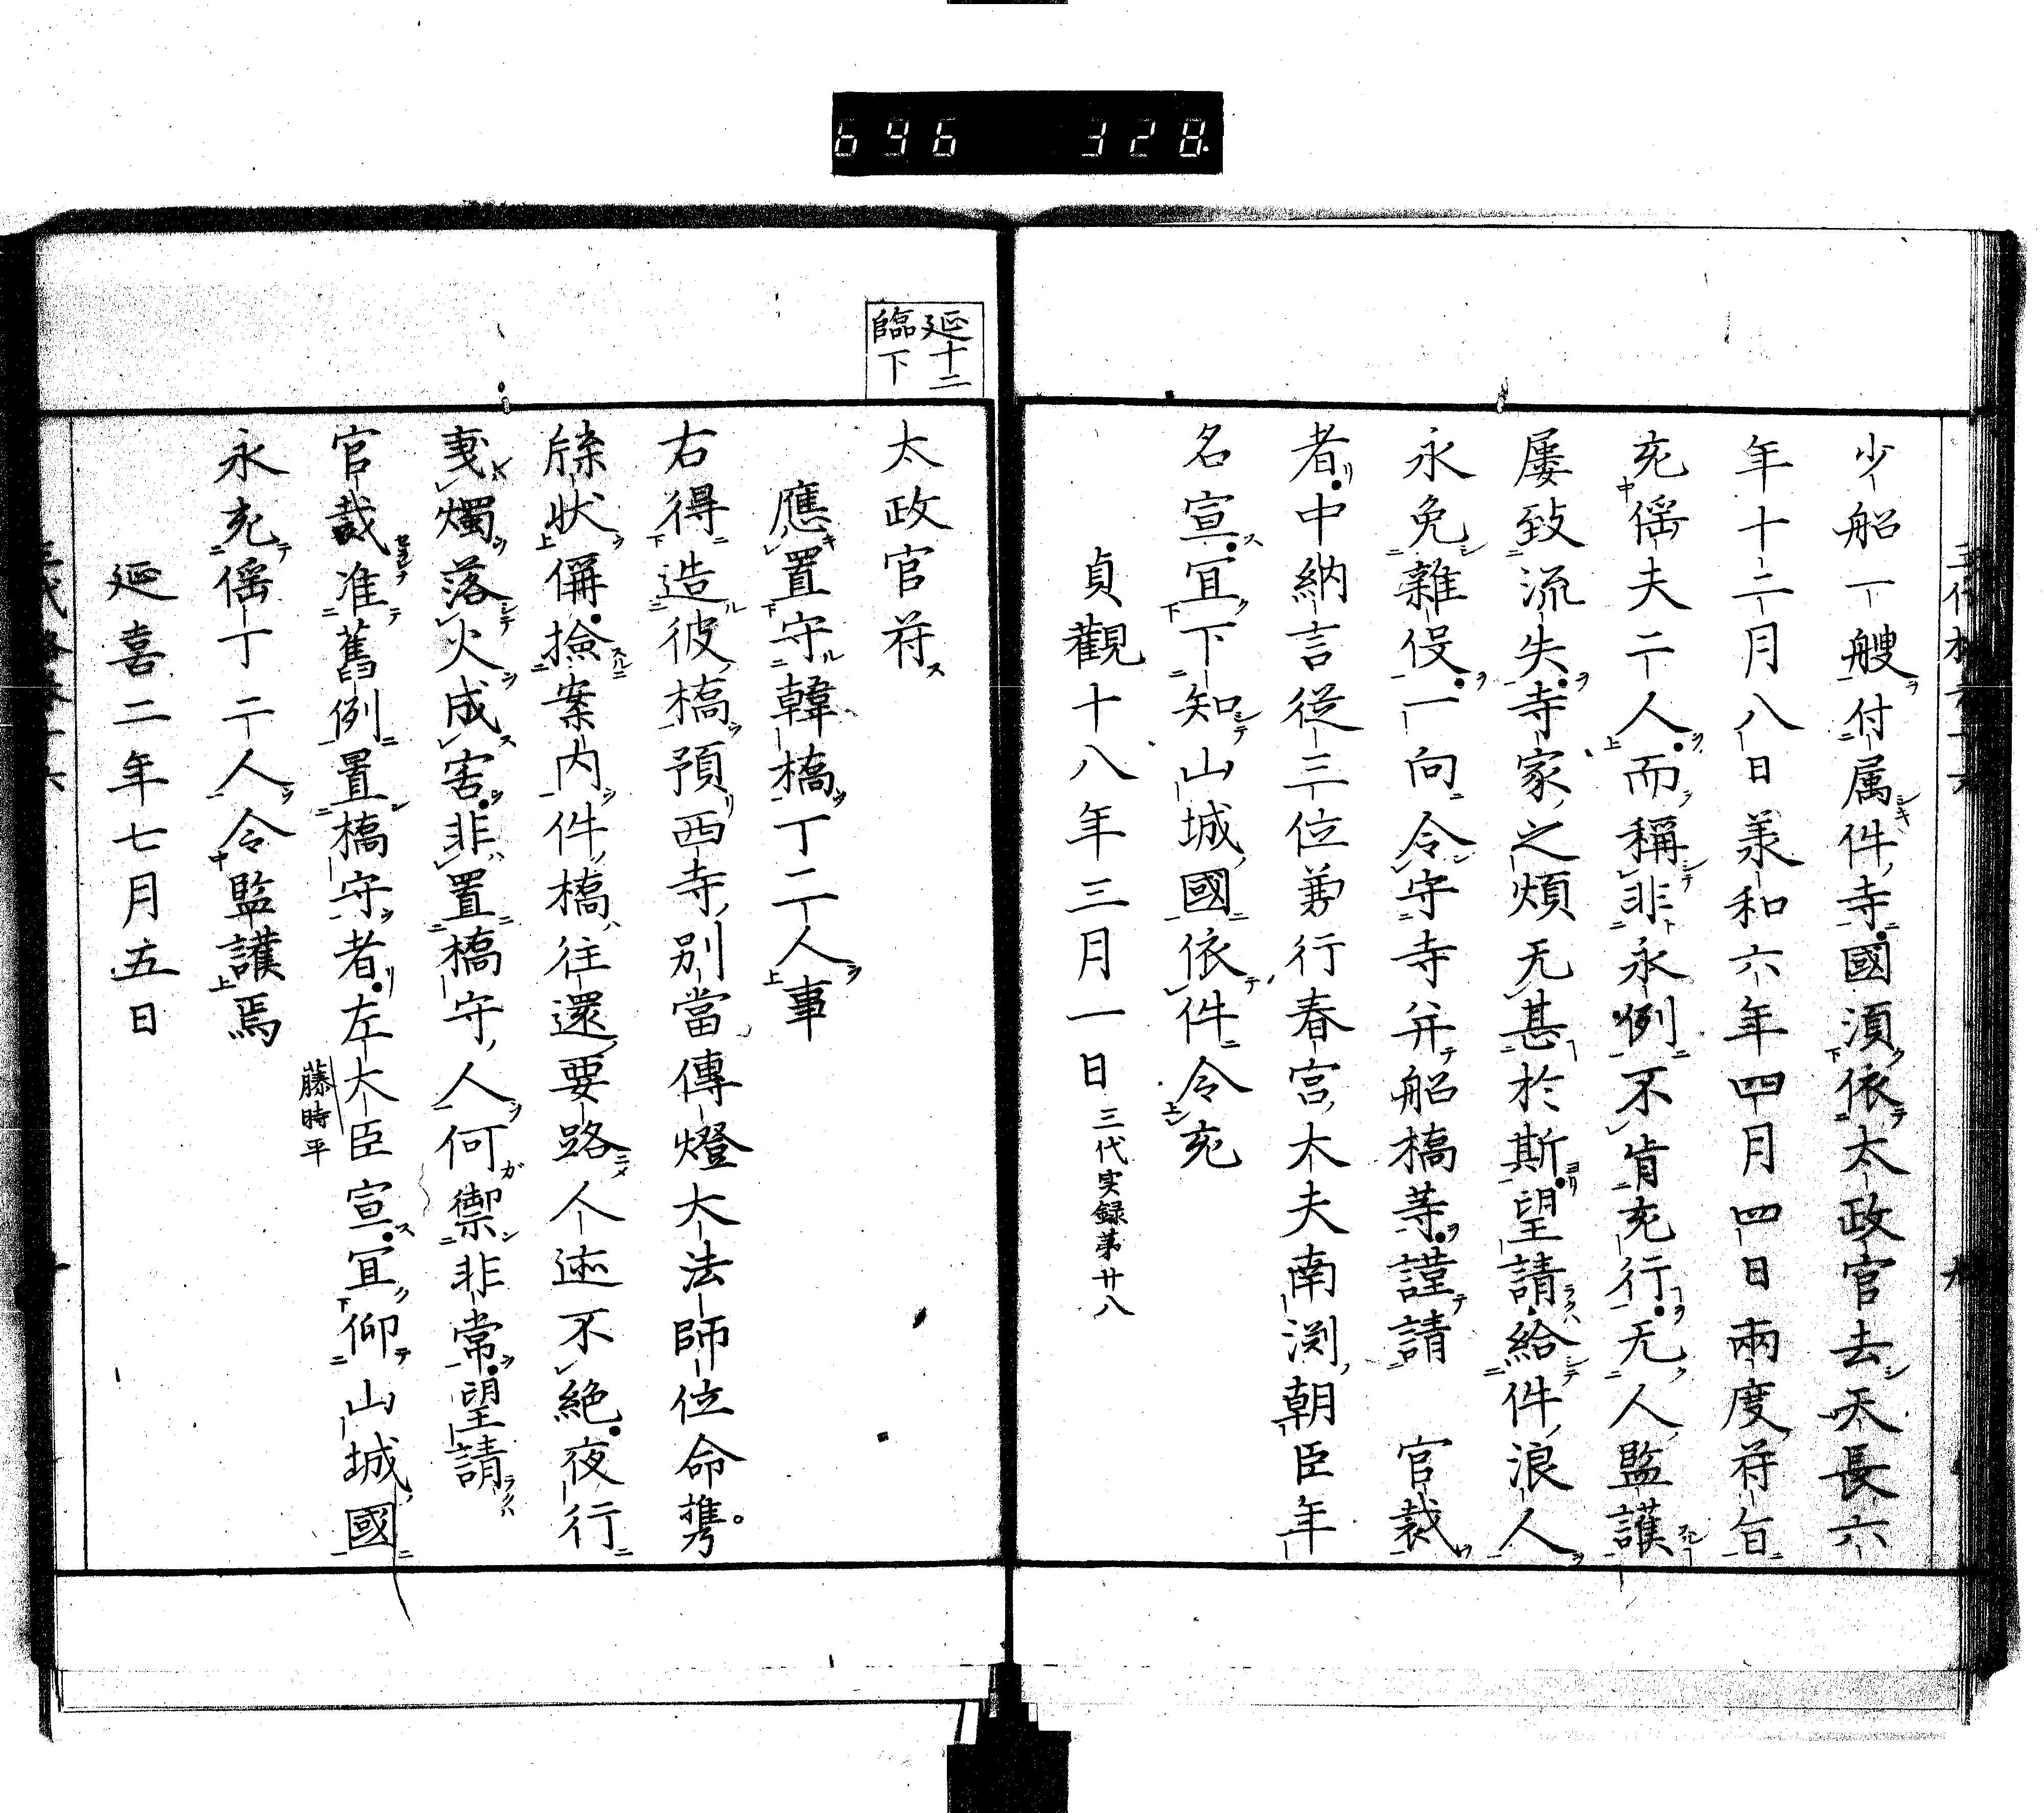 696 328
少船一艘付属件寺國湏依太政官去天長六
年十二月八日羕和六年四月四日兩度符旨
充傜夫二人而稱非永例不肯充行无人監護
屢致流失寺家之煩无甚於斯望請給件浪人
永免雜伇一向令守寺并船橋等謹請 官裁
者中納言從三位兼行春宮大夫南渕朝臣年
名宣宜下知山城國依件令充
貞觀十八年三月一日 三代実録苐廿八
延十二
臨下
太政官符
應置守韓橋丁二人事
右得造彼橋預西寺別當傳燈大法師位命㩗
牒状偁撿案内件橋往還要路人迹不絶夜行
曳燭落火成害非置橋守人何禦非常望請
官裁准舊例置橋守者左大臣宣宜仰山城國
藤時平
永充傜丁二人令監護焉
延喜二年七月五日